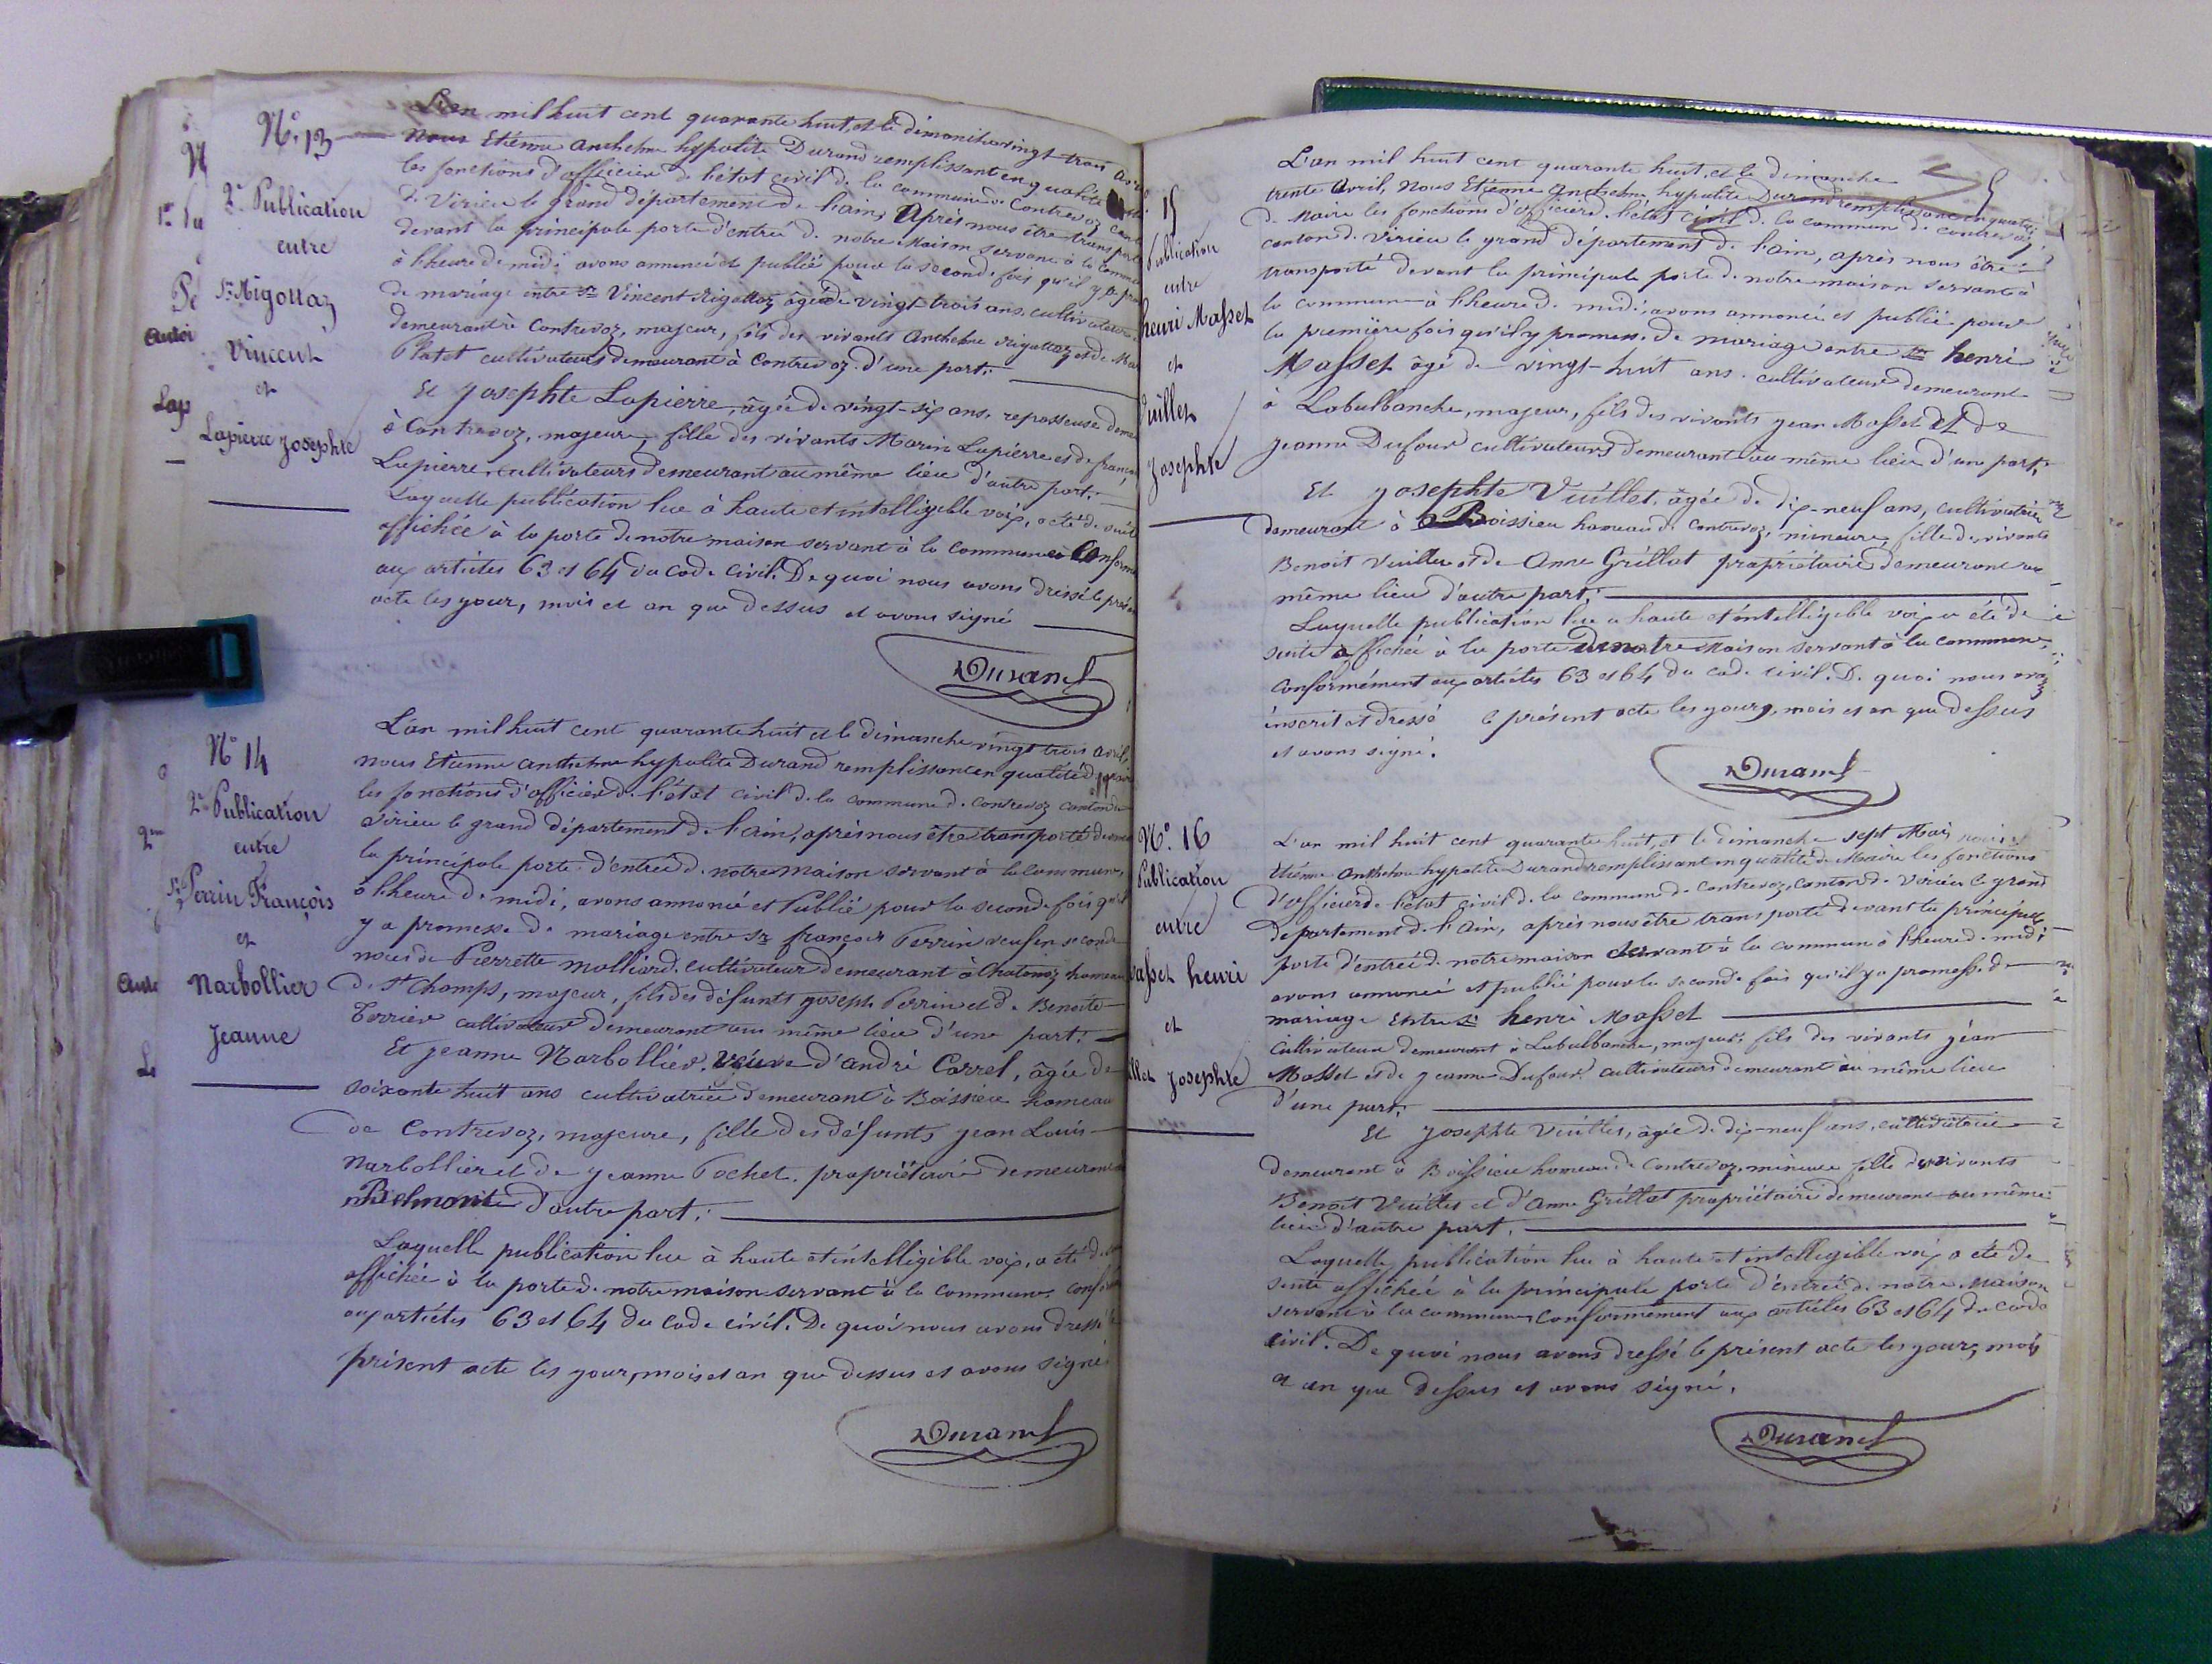 N° 13
2e Publication
entre
Sr Rigottaz
Vincent
et
Lapierre Josephte
L'an mil huit cent quarante huit, et le dimanche vingt trois avril
Nous Etienne Anthelme hypolite Durand remplissant en qualité
les fonctions d'officier de l'état civil de la commune de Contrevoz
de Virieu le grand département de l'ain, Après nous être transporté
devant la principale porte d'entrée de notre Maison servant à la commune
à l'heure de midi, avons annoncé et publié pour la seconde fois qu'il y a
de mariage entre Sr Vincent Rigottaz âgé de vingt-trois ans, cultivateur
demeurant à Contrevoz, majeur, fils des vivants Anthelme Rigottaz et de
Platet cultivateurs demeurant à Contrevoz d'une part.
Et Josephte Lapierre, âgée de vingt-six ans, repasseuse
à Contrevoz, majeure, fille des vivants Marin Lapierre et de
Lapierre, cultivateurs demeurant au même lieu d'autre part.
Laquelle publication lue à haute et intelligible voix, a été de suite
affichée à la porte de notre maison servant à la commune
aux articles 63 et 64 du code civil. De quoi nous avons dressé le
acte les jour, mois et an que dessus et avons signé
Durand
N° 14
2e Publication
entre
Sr Perrin François
et
Narbollier
Jeanne
L'an mil huit cent quarante huit et le dimanche vingt trois avril,
nous Etienne anthelme hypolite Durand remplissant en qualité de
les fonctions d'officier de l'état civil de la commune de Contrevoz canton de
Virieu le grand département de l'ain, après nous être transporté
la principale porte d'entrée de notre maison servant à la commune,
à l'heure de midi, avons annoncé et Publié pour la seconde fois qu'il
y a promesse de mariage entre Sr françois Perrin veuf en seconde
noces de Pierrette Molliard, cultivateur demeurant à Chatonoz hameau
de St Champs, majeur, fils des défunts joseph Perrin et de Benoite
Terrier cultivateur demeurant au même lieu d'une part.
Et jeanne Narbollier, veuve d'andré Carrel, âgée de
soixante huit ans cultivatrice demeurant à Boissieu hameau
de Contrevoz, majeure, fille des défunts jean Louis
Narbollier et de jeanne Pochet, propriétaire demeurant
Belmont d'autre part.
Laquelle publication lue à haute et intelligible voix, a été de
affichée à la porte de notre maison servant à la commune,
aux articles 63 et 64 du code civil. De quoi nous avons dressé
présent acte les jour, mois et an que dessus et avons signé
Durand
15
Publication
entre
henri Masset
et
Vuillet
Josephte
L'an mil huit cent quarante huit, et le dimanche
trente avril, Nous Etienne Anthelme hypolite Durand remplissant en qualité
de Maire les fonctions d'officier de l'état civil de la commune de contrevoz
canton de Virieu le grand département de l'ain, après nous être
transporté devant la principale porte de notre maison servant à
la commune à l'heure de midi, avons annoncé et publié pour
la première fois qu'il y promesse de mariage entre Sr henri
Masset âgé de vingt-huit ans cultivateur demeurant
à Labulbanche, majeur, fils des vivants jean Masset Et de
jeanne Dufour cultivateurs demeurant au même lieu d'une part.
Et josephte Vuillet, âgée de dix-neuf ans, cultivatrice
demeurant à Boissieu hameau de Contrevoz, mineure, fille des vivants
Benoit Vuillet et de Anne Grillat propriétaire demeurant au
même lieu d'autre part.
Laquelle publication lue a haute et intelligible voix a été de
suite affichée à la porte de notre Maison servant à la commune,
conformément aux articles 63 et 64 du code civil. De quoi nous avons
inscrit et dressé le présent acte les jours, mois et an que dessus
et avons signé.
Durand
N° 16
Publication
entre
Masset henri
et
Josephte
L'an mil huit cent quarante huit, et le dimanche sept Mai, nous
Etienne Anthelme hypolite Durand remplissant en qualité de Maire les fonctions
d'officier de l'état civil de la commune de Contrevoz, canton de Virieu le grand
département de l'Ain, après nous être transporté devant la principale
porte d'entrée de notre maison servant à la commune à l'heure de midi
avons annoncé et publié pour la seconde fois qu'il y a promesse de
mariage entre Sr henri Masset
Cultivateur demeurant à Labulbanche, majeur, fils des vivants jean
Masset et de jeanne Dufour cultivateurs demeurant au même lieu
d'une part.
Et josephte Vuillet, âgée de dix-neuf ans, cultivatrice
demeurant à Boissieu hameau de Contrevoz, mineure fille des vivants
Benoit Vuillet et d'Anne Grillat propriétaire demeurant au même
lieu d'autre part.
Laquelle publication lue à haute et intelligible voix a été de
suite affichée à la principale porte d'entrée de notre Maison
servant à la commune, conformément aux articles 63 et 64 du code
civil. De quoi nous avons dressé le présent acte les jours, mois
et an que dessus et avons signé.
Durand